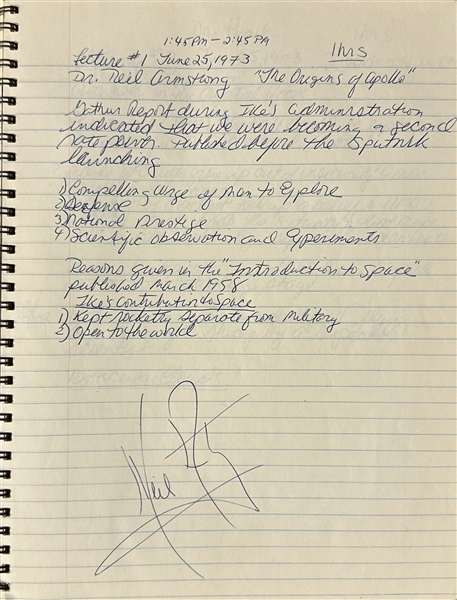 1:45 PM - 2:45 PM
1 hrs
Lecture #1 June 25, 1973
Dr. Neil Armstrong "The Origins of Apollo"
Report during Ike's administration
indicated that we were becoming a second
rate power. Published before the Sputnik
launching
1) Compelling urge of Man to Explore
2) Defense
3) National Prestige
4) Scientific Observation and Experiments
Reasons given in the "Introduction to Space"
published March 1958
Ike's Contribution to Space
1) Kept rocketry separate from military
2) Open to the world
Neil